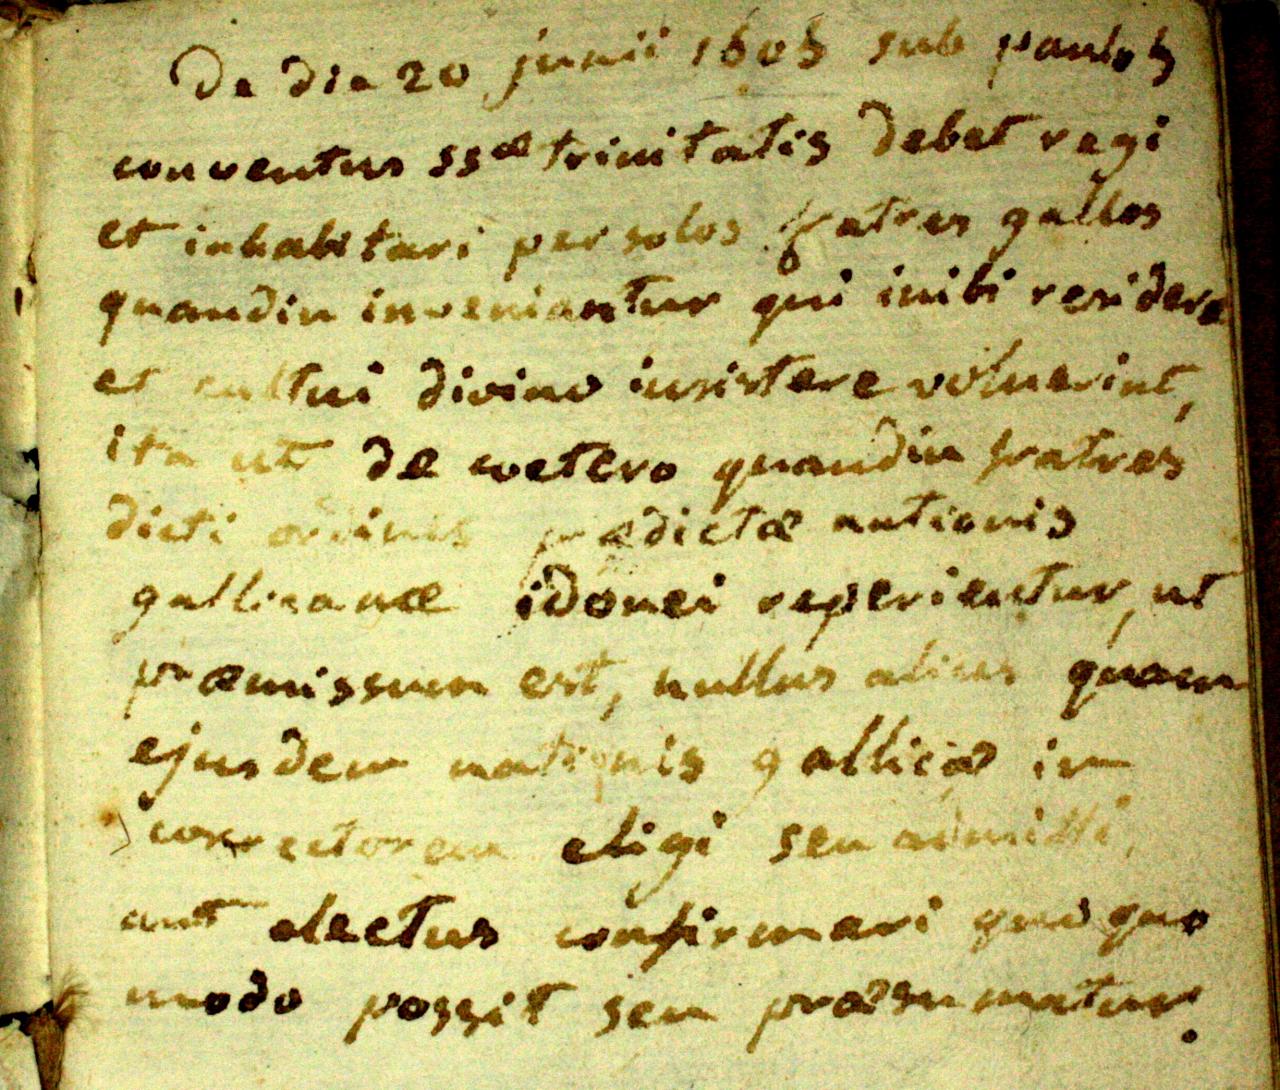 De die 20 junii 1605 sub paulo 5
conventus ssæ trinitatis debet regi
et inhabitari per solos fratres gallos
quandiu inveniantur qui inibi residere
et cultui divino insistere voluerint,
ita ut de cœtero quandiu fratres
dicti ordinis prædictæ nationis
gallicanæ idonei reperientur, ut
præmissum est, nullus alius quam
ejusdem nationis gallicæ in
correctorem eligi seu admitti,
aut electus confirmari quoquo
modo possit seu præsumatur.